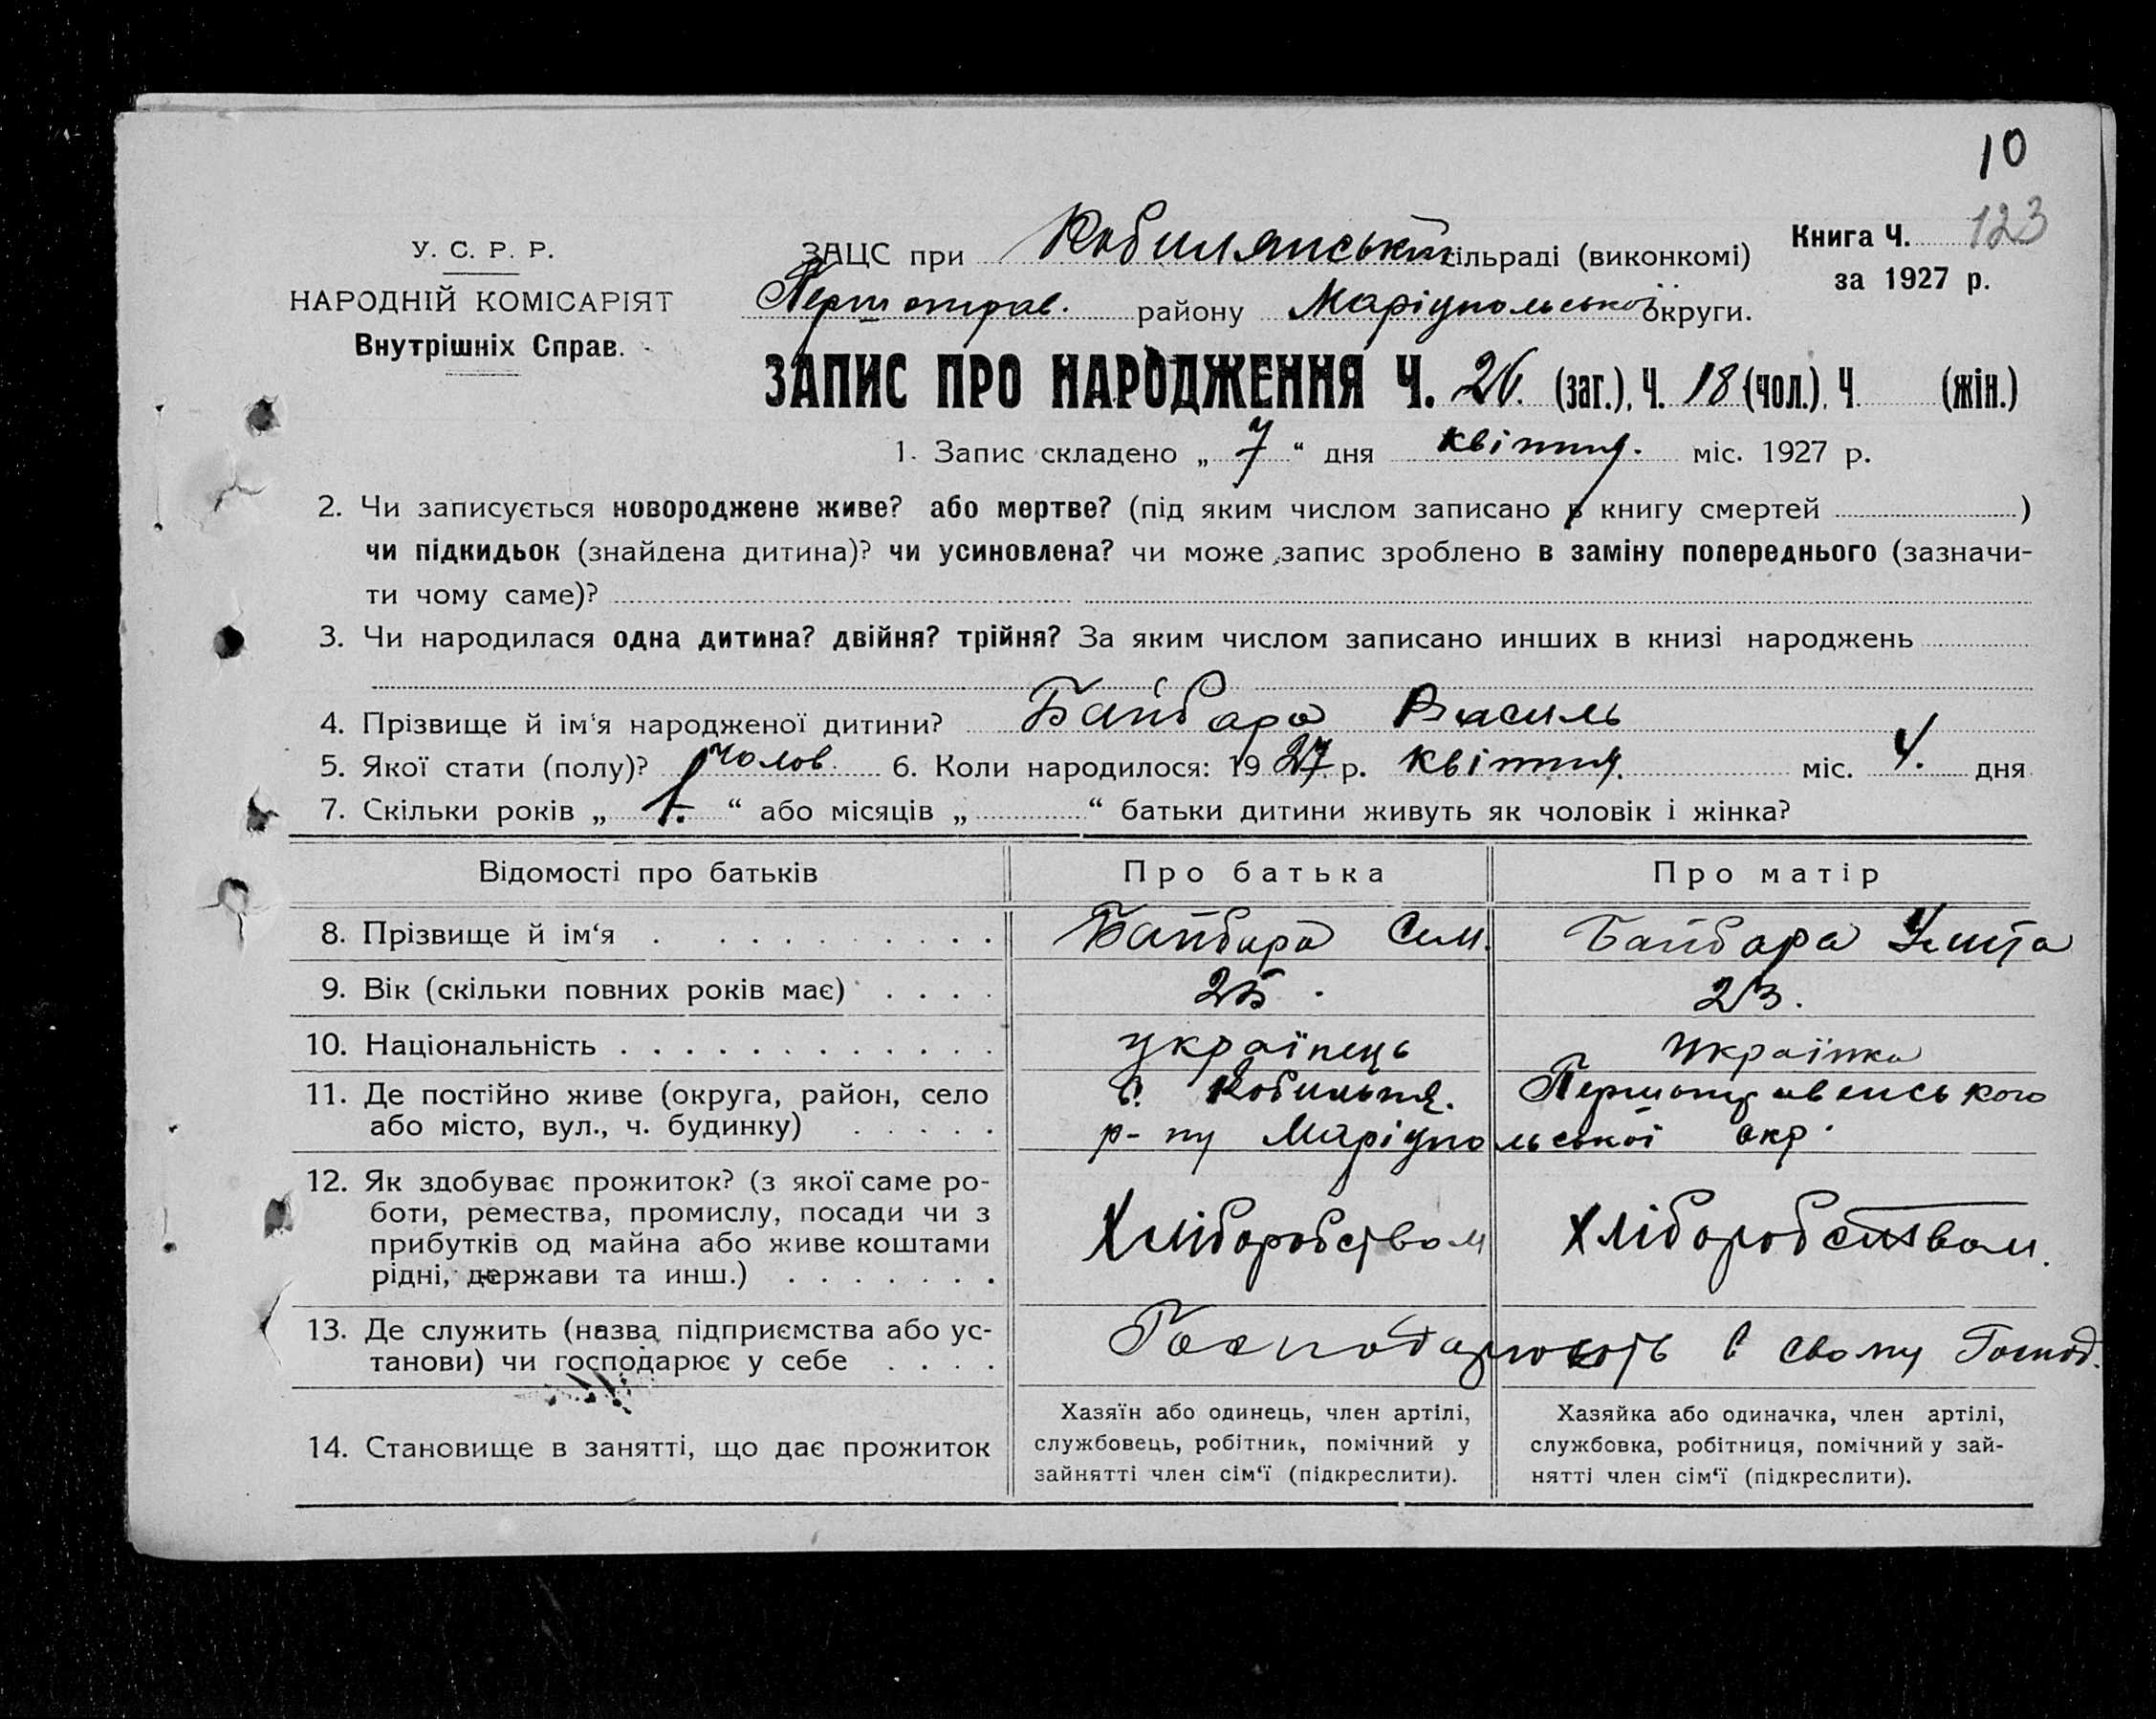 10
У. С. Р. Р.
НАРОДНІЙ КОМІСАРІЯТ
Внутрішніх Справ.
ЗАЦС при Кобилянській сільраді (виконкомі)
Книга Ч. 123
за 1927 р.
Першотрав. району Маріупольської округи.
ЗАПИС ПРО НАРОДЖЕННЯ Ч. 26. (заг.), Ч. 18 (чол.), Ч. (жін.)
1. Запис складено „ 7 “ дня квітня. міс. 1927 р.
2. Чи записується новороджене живе? або мертве? (під яким числом записано в книгу смертей )
чи підкидьок (знайдена дитина)? чи усиновлена? чи може запис зроблено в заміну попереднього (зазначи-
ти чому саме)?
3. Чи народилася одна дитина? двійня? трійня? За яким числом записано инших в книзі народжень
4. Прізвище й ім‘я народженої дитини? Байбара Василь
5. Якої стати (полу)? чолов. 6. Коли народилося: 1927 р. квітня. міс. 4. дня
7. Скільки років „ 1. “ або місяців „ “ батьки дитини живуть як чоловік і жінка?
Відомості про батьків Про батька Про матір
8. Прізвище й ім‘я Байбара Сем. Байбара
9. Вік (скільки повних років має) 25. 23.
10. Національність українець українка
11. Де постійно живе (округа, район, село с. Кобильня. Першотравенського
або місто, вул., ч. будинку) р-ну Маріупольської окр.
12. Як здобуває прожиток? (з якої саме ро-
боти, ремества, промислу, посади чи з
прибутків од майна або живе коштами
рідні, держави та инш.)
Хліборобством Хліборобством.
13. Де служить (назва підприємства або ус-
танови) чи господарює у себе
Господарюють в свому Господ.
14. Становище в занятті, що дає прожиток
Хазяїн або одинець, член артілі,
службовець, робітник, помічний у
зайнятті член сім‘ї (підкреслити).
Хазяйка або одиначка, член артілі,
службовка, робітниця, помічний у зай-
нятті член сім‘ї (підкреслити).